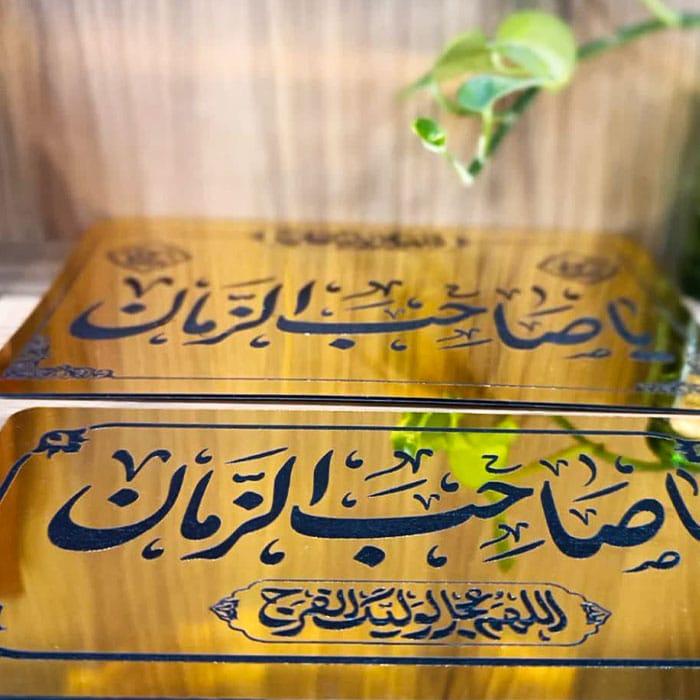 یا صاحب الزمان
یا صاحب الزمان
اللهم عجل لولیک الفرج